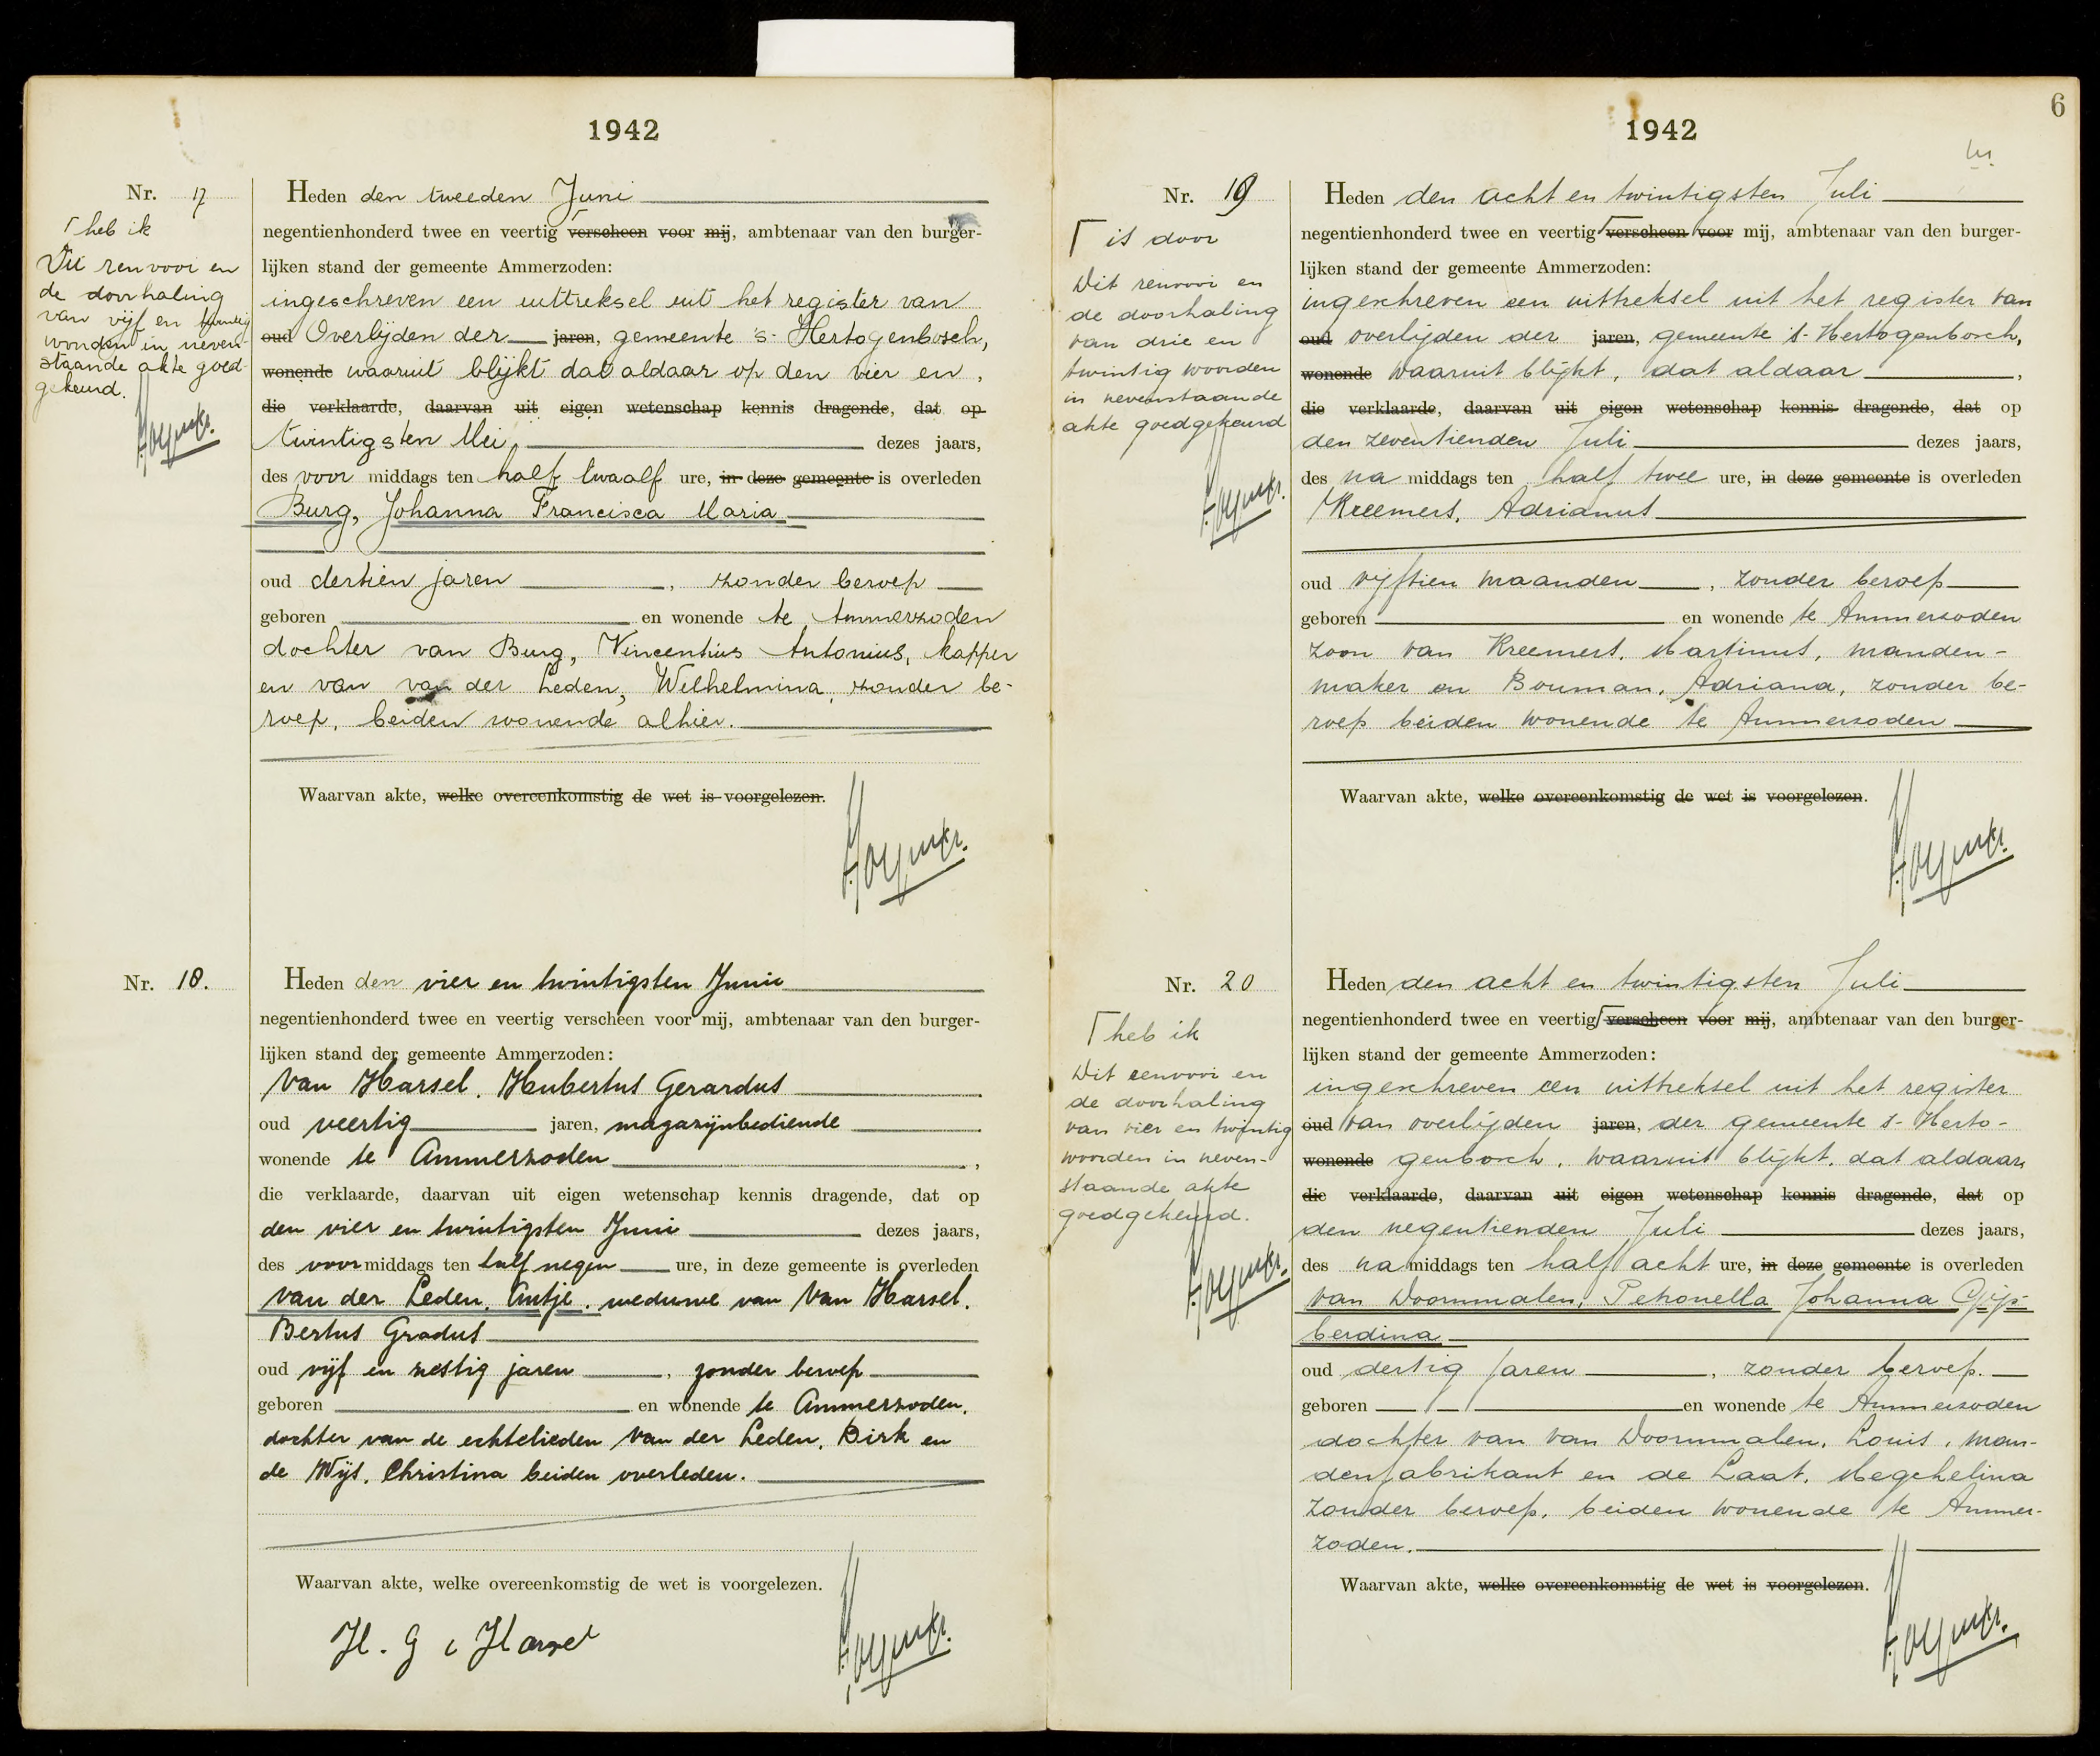 1942
Nr. 17
heb ik
Dit renvooi en
de doorhaling
van vijf en twintig
woorden in neven-
staande akte goed-
gekeurd.
Heden den tweeden Juni
negentienhonderd twee en veertig verscheen voor mij, ambtenaar van den burger-
lijken stand der gemeente Ammerzoden:
ingeschreven een uittreksel uit het register van
oud Overlijden der jaren, gemeente 's-Hertogenbosch,
wonende waaruit blijkt dat aldaar op den vier en,
die verklaarde, daarvan uit eigen wetenschap kennis dragende, dat op
twintigsten Mei, dezes jaars,
des voor middags ten half twaalf ure, in deze gemeente is overleden
Burg, Johanna Francisca Maria
oud dertien jaren, zonder beroep
geboren en wonende te Ammerzoden
dochter van Burg, Vincentius Antonius, kapper
en van van der Leden, Wilhelmina, zonder be-
roep, beiden wonende alhier.
Waarvan akte, welke overeenkomstig de wet is voorgelezen.
Nr. 18.
Heden den vier en twintigsten Juni
negentienhonderd twee en veertig verscheen voor mij, ambtenaar van den burger-
lijken stand der gemeente Ammerzoden:
Van Harsel, Hubertus Gerardus
oud veertig jaren, magazijnbediende
wonende te Ammerzoden,
die verklaarde, daarvan uit eigen wetenschap kennis dragende, dat op
den vier en twintigsten Juni dezes jaars,
des voor middags ten half negen ure, in deze gemeente is overleden
van der Leden, Antje, weduwe van Van Harsel,
Bertus Gradus
oud vijf en zestig jaren, zonder beroep
geboren en wonende te Ammerzoden,
dochter van de echtelieden Van der Leden, Dirk en
de Wijs, Christina beiden overleden.
Waarvan akte, welke overeenkomstig de wet is voorgelezen.
H. G v Harsel
6
1942
Nr. 19
is door
Dit renvooi en
de doorhaling
van drie en
twintig woorden
in nevenstaande
akte goedgekeurd
Heden den acht en twintigsten Juli
negentienhonderd twee en veertig verscheen voor mij, ambtenaar van den burger-
lijken stand der gemeente Ammerzoden:
ingeschreven een uittreksel uit het register van
oud overlijden der jaren, gemeente 's-Hertogenbosch,
wonende waaruit blijkt, dat aldaar,
die verklaarde, daarvan uit eigen wetenschap kennis dragende, dat op
den zeventienden Juli dezes jaars,
des na middags ten half twee ure, in deze gemeente is overleden
Kreemers, Adrianus
oud vijftien maanden, zonder beroep
geboren en wonende te Ammerzoden
zoon van Kreemers, Martinus, manden-
maker en Bouman, Adriana, zonder be-
roep beiden wonende te Ammerzoden
Waarvan akte, welke overeenkomstig de wet is voorgelezen.
Nr. 20
heb ik
Dit renvooi en
de doorhaling
van vier en twintig
woorden in neven-
staande akte
goedgekeurd.
Heden den acht en twintigsten Juli
negentienhonderd twee en veertig verscheen voor mij, ambtenaar van den burger-
lijken stand der gemeente Ammerzoden:
ingeschreven een uittreksel uit het register
oud van overlijden jaren, der gemeente 's-Herto-
wonende genbosch, waaruit blijkt, dat aldaar,
die verklaarde, daarvan uit eigen wetenschap kennis dragende, dat op
den negentienden Juli dezes jaars,
des na middags ten half acht ure, in deze gemeente is overleden
van Doornmalen, Petronella Johanna Gijs-
berdina
oud dertig jaren, zonder beroep.
geboren en wonende te Ammerzoden
dochter van van Doornmalen, Louis, man-
denfabrikant en de Laat, Megchelina
zonder beroep, beiden wonende te Ammer-
zoden.
Waarvan akte, welke overeenkomstig de wet is voorgelezen.